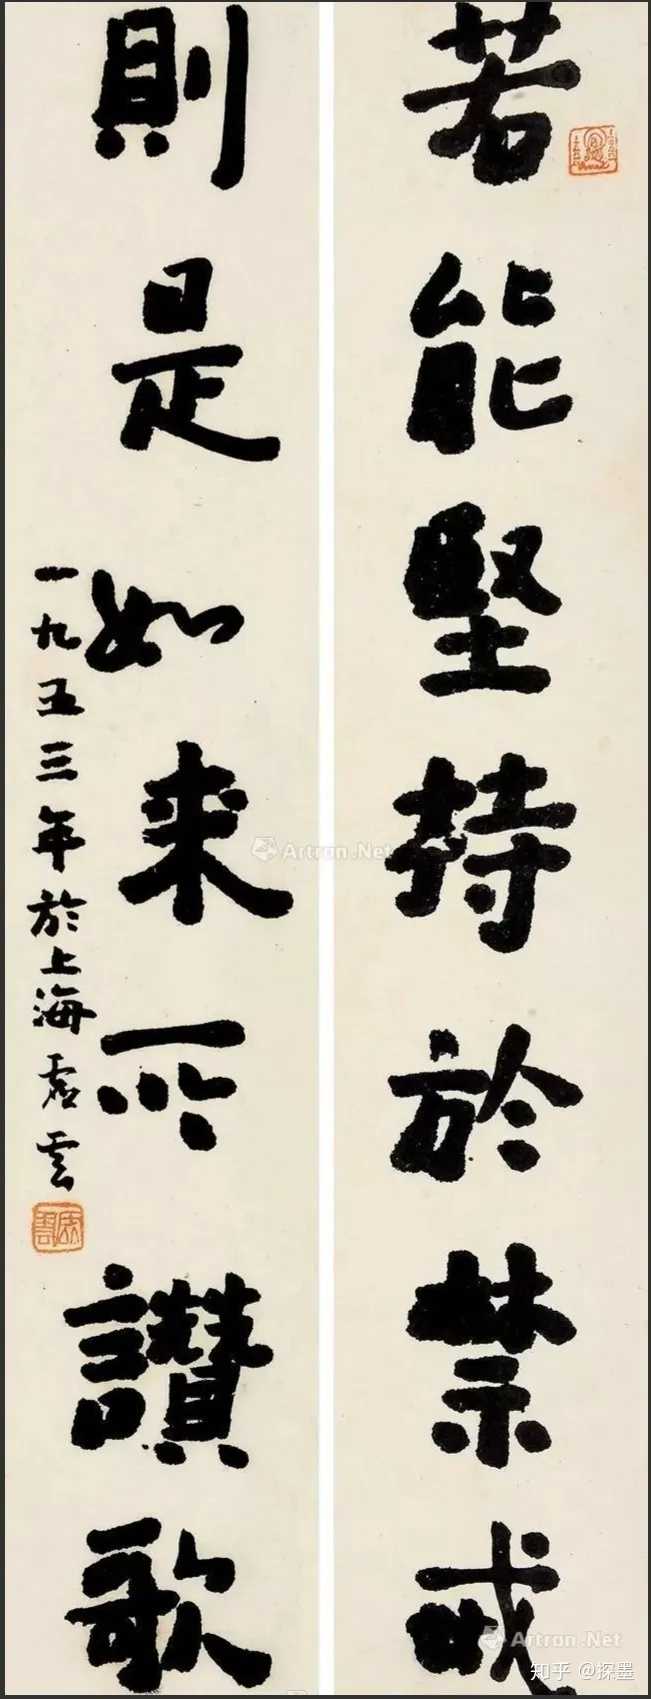 若能堅持於禁戒
則是如來所讚歌
一九五三年於上海虛雲
Artron.Net
Artron.Net
知乎 @探墨